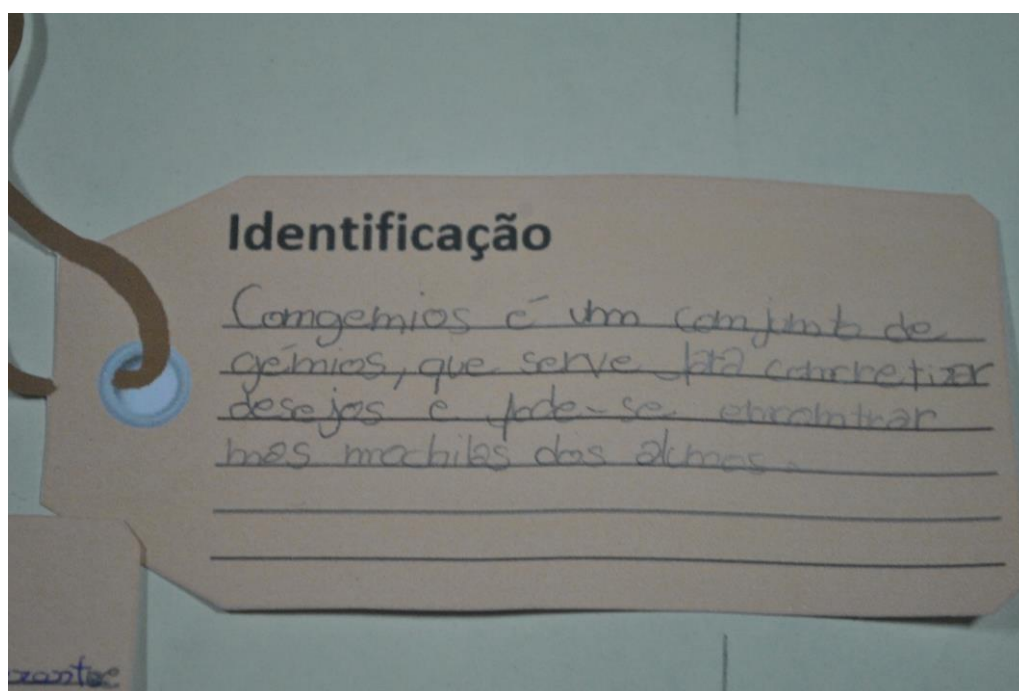 Identificação
Comgemios é um comjumto de
gémios, que serve para comcretizar
desejos e pode-se emcomtrar
mas mochilas dos alumos.